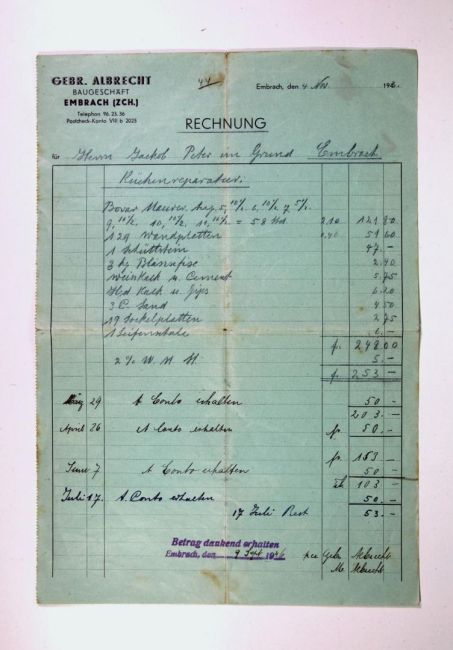 GEBR. ALBRECHT
BAUGESCHÄFT
EMBRACH (ZCH.)
Telephon 96.23.36
Postcheck-Konto VIII b 2023
44
Embrach, den 4 Nov. 194
RECHNUNG
für Herrn Jackob Peter im Grund Embrach
Küchenreparatur:
= 58 Std. 2.10 121 80
129 Wandplatten -.40 51 60
1 Schüttstein 47.-
3 kg 2.40
Weinkalk u. Cement 5.75
Kalk u. Gips 6.20
3 C. Sand 4.50
19 Sockelplatten 2.75
1 Seifenschale 6.-
fr. 248 00
2 % W. U. St. 5.-
fr. 253.-
März 29 A Conto erhalten 50 -
203.-
April 26 A Conto erhalten fr 50.-
fr 153.-
Juni 7 A Conto erhalten 50 -
103 -
Juli 17. A Conto erhalten 50.-
17 Juli Rest 53.-
Betrag dankend erhalten
Embrach, den 9 Sept 194 per Gebr. Albrecht
M. Albrecht